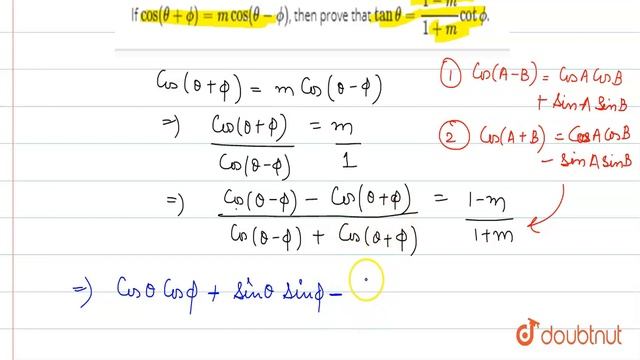 1 - m
If cos(θ + ϕ) = m cos(θ - ϕ), then prove that tan θ = ――― cot ϕ.
1 + m
Cos(θ+ϕ) = m Cos(θ-ϕ)
=> Cos(θ+ϕ) / Cos(θ-ϕ) = m / 1
=> Cos(θ-ϕ) - Cos(θ+ϕ) / Cos(θ-ϕ) + Cos(θ+ϕ) = 1-m / 1+m
=> Cosθ Cosϕ + Sinθ Sinϕ -
① Cos(A-B) = CosA CosB
+ SinA SinB
② Cos(A+B) = CosA CosB
- SinA SinB
doubtnut